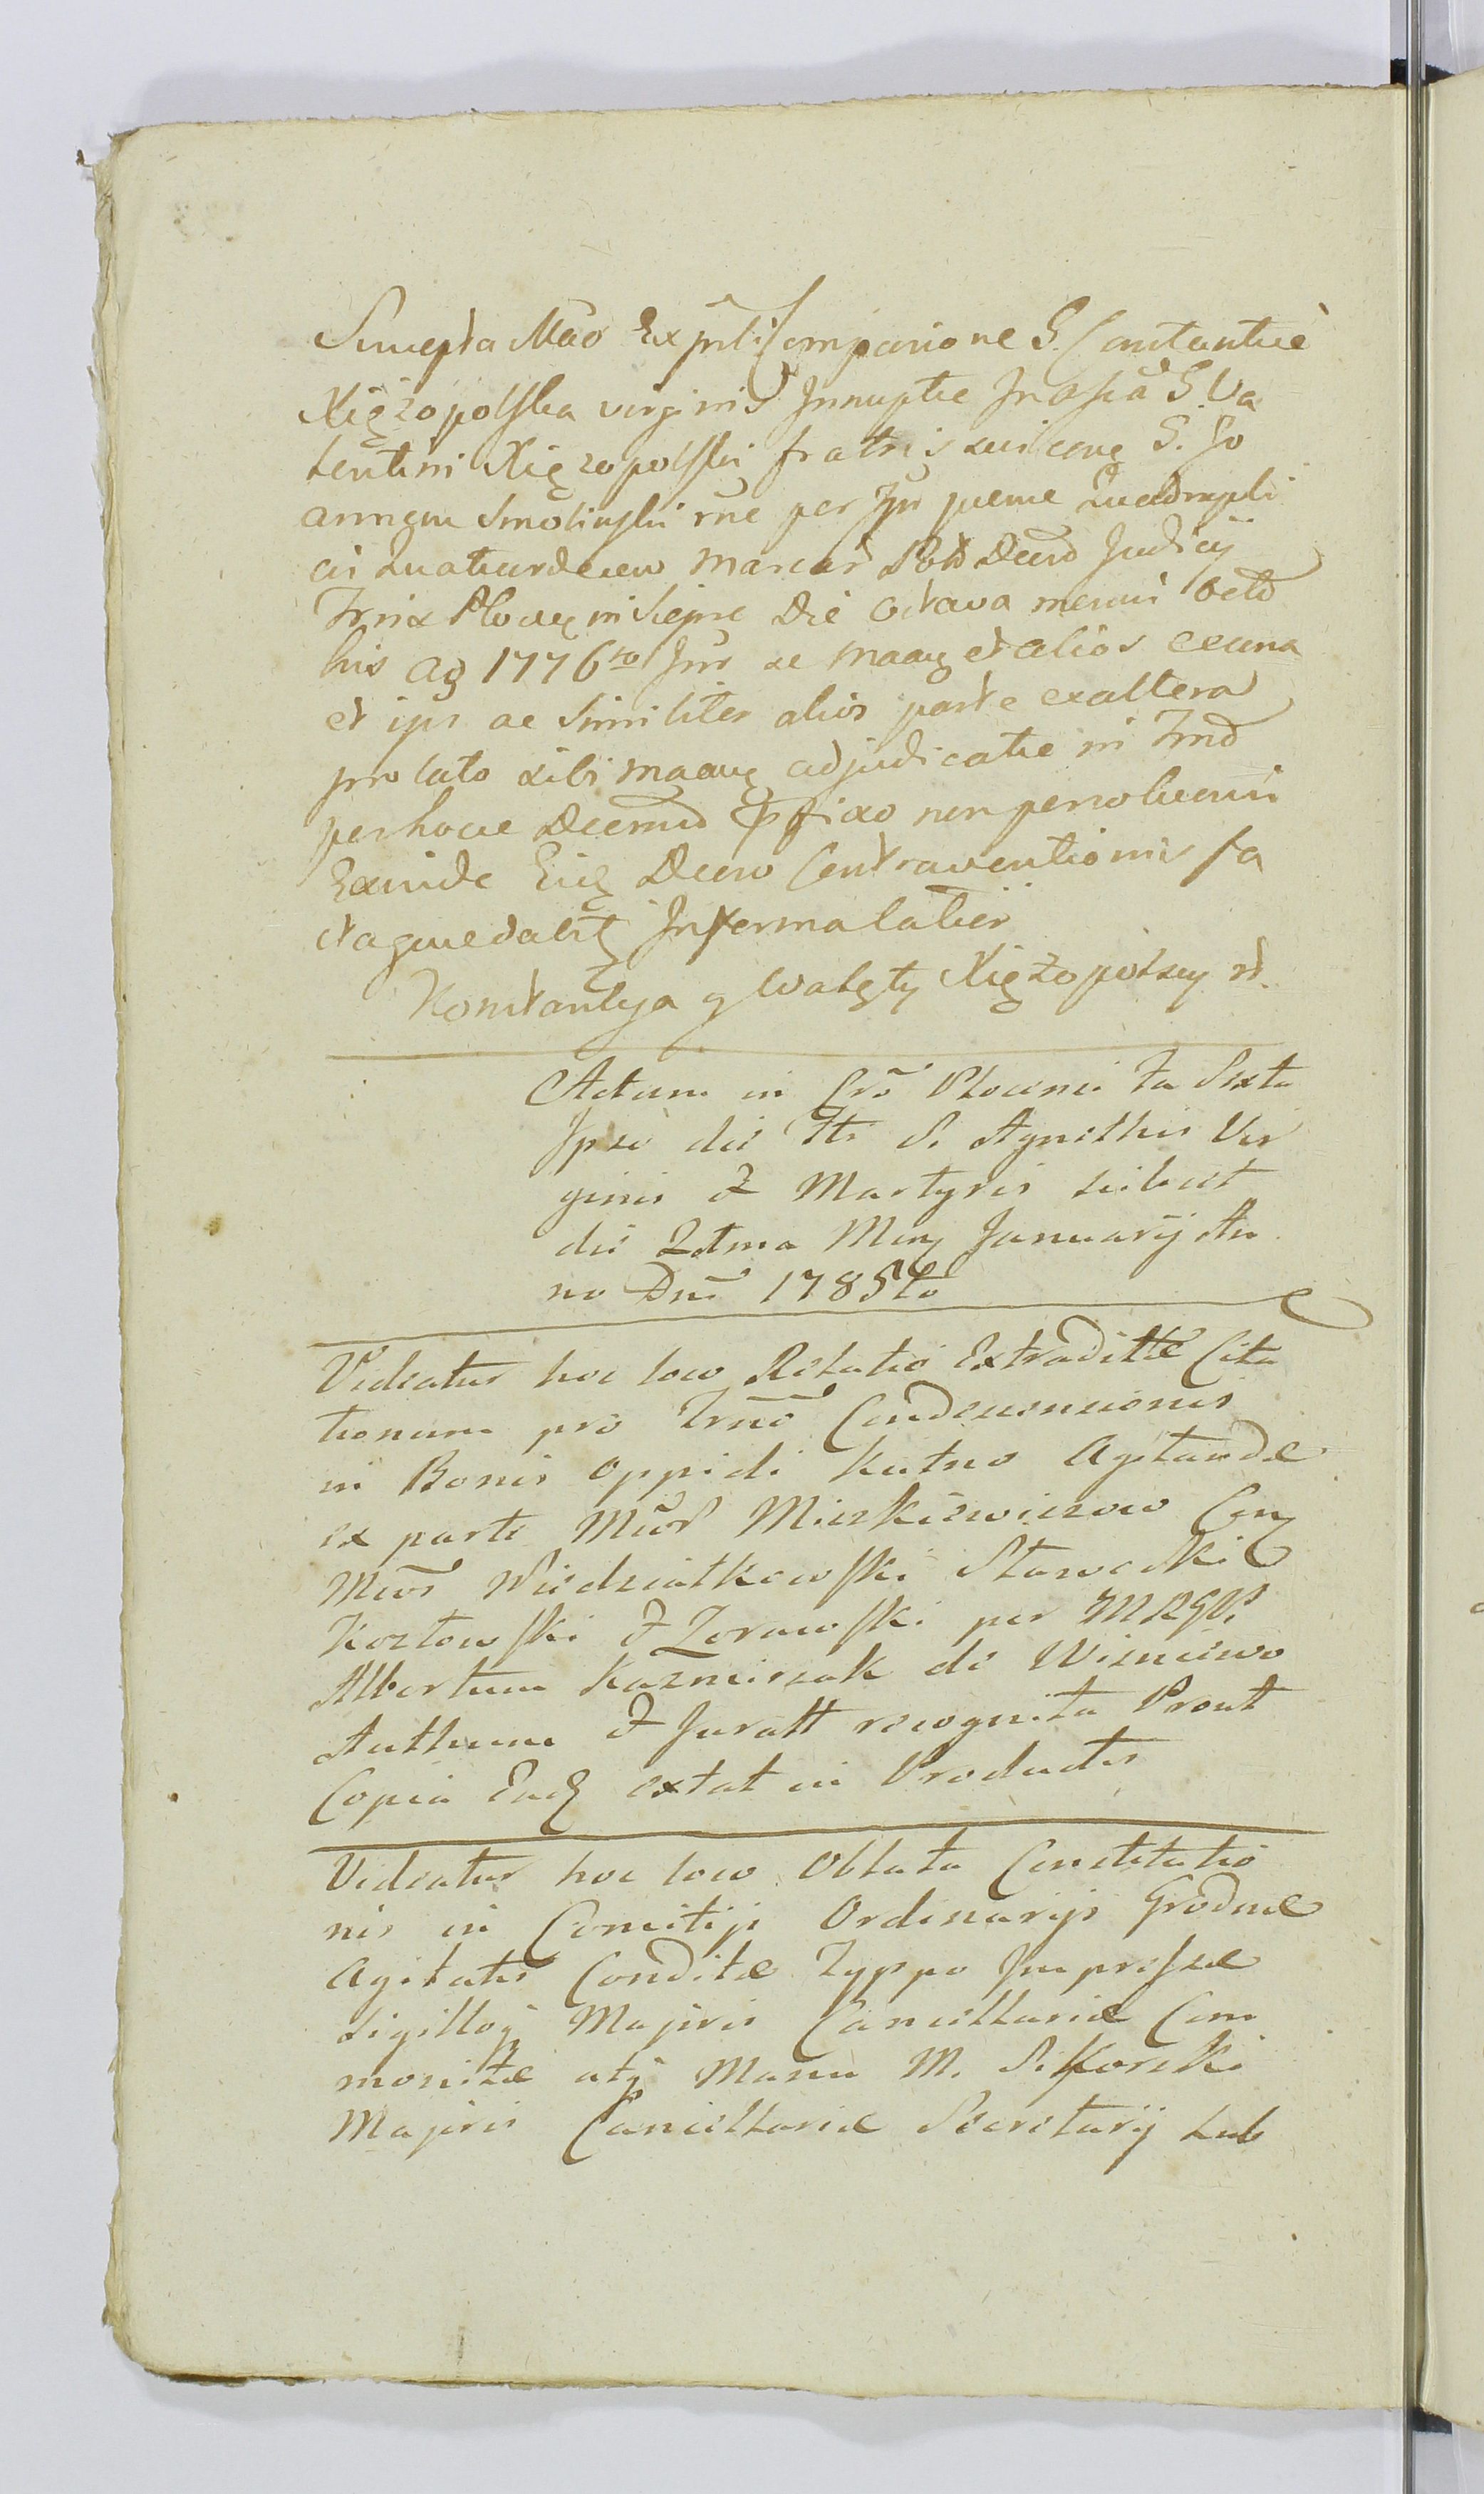 Suscepta Mão Ex pñli Comparione G. Constantiæ
Xięzopolska virginis Innuptæ In asiã G. Va
lentini Xięzopolski fratris sui cong G. Jo
annem Smoliński rñe per Ipũ pænæ quadrupli
cis quatuordecem marcar Poł Decro Judicij
Trnix Plocen in Sierpc Die octava mensis octo
bris Ao 1776to Inr se Maag et alios ex una
et ips ac similiter alios parte ex altera
pro lato sibi Maag adjudicatæ in Trnõ
per hocce Decretũ ꝓfixo non persolucionis
Exinde Eiq Decro Contraventionis fa
ctæquedatæ In forma latior
Konstantyja y Walęty Xięzopolscy
Actum in Cro Plocensi Fa Sexta
Ipso die Fti S. Agnethis Vir
ginis & Martyris scilicet
die 21ma Mens Januarij An
no Dni 1785to
Videatur hoc loco Relatio Extraditæ Cita
tionum pro Trño Condescensionis
in Bonis Oppidi Kutno Agitandæ
ex parte Mũor Mierkiewiczow Con
Mũos Niedziałkowski Staweski
Kozłowski & Zorawski per MRGP
Albertum Kazmirzak de Wisniewo
Authum & Juratt recognita Prout
Copia Eadȝ extat in Productis
Videatur hoc loco Oblata Constitutio
nis in Comitijs Ordinarijs Grodnæ
Agitatis Conditæ Typpo Impressæ
Sigilloq Majoris Cancellariæ Com
monitæ atq Manu M. Sikorski
Majoris Cancellariæ Secretarij sub